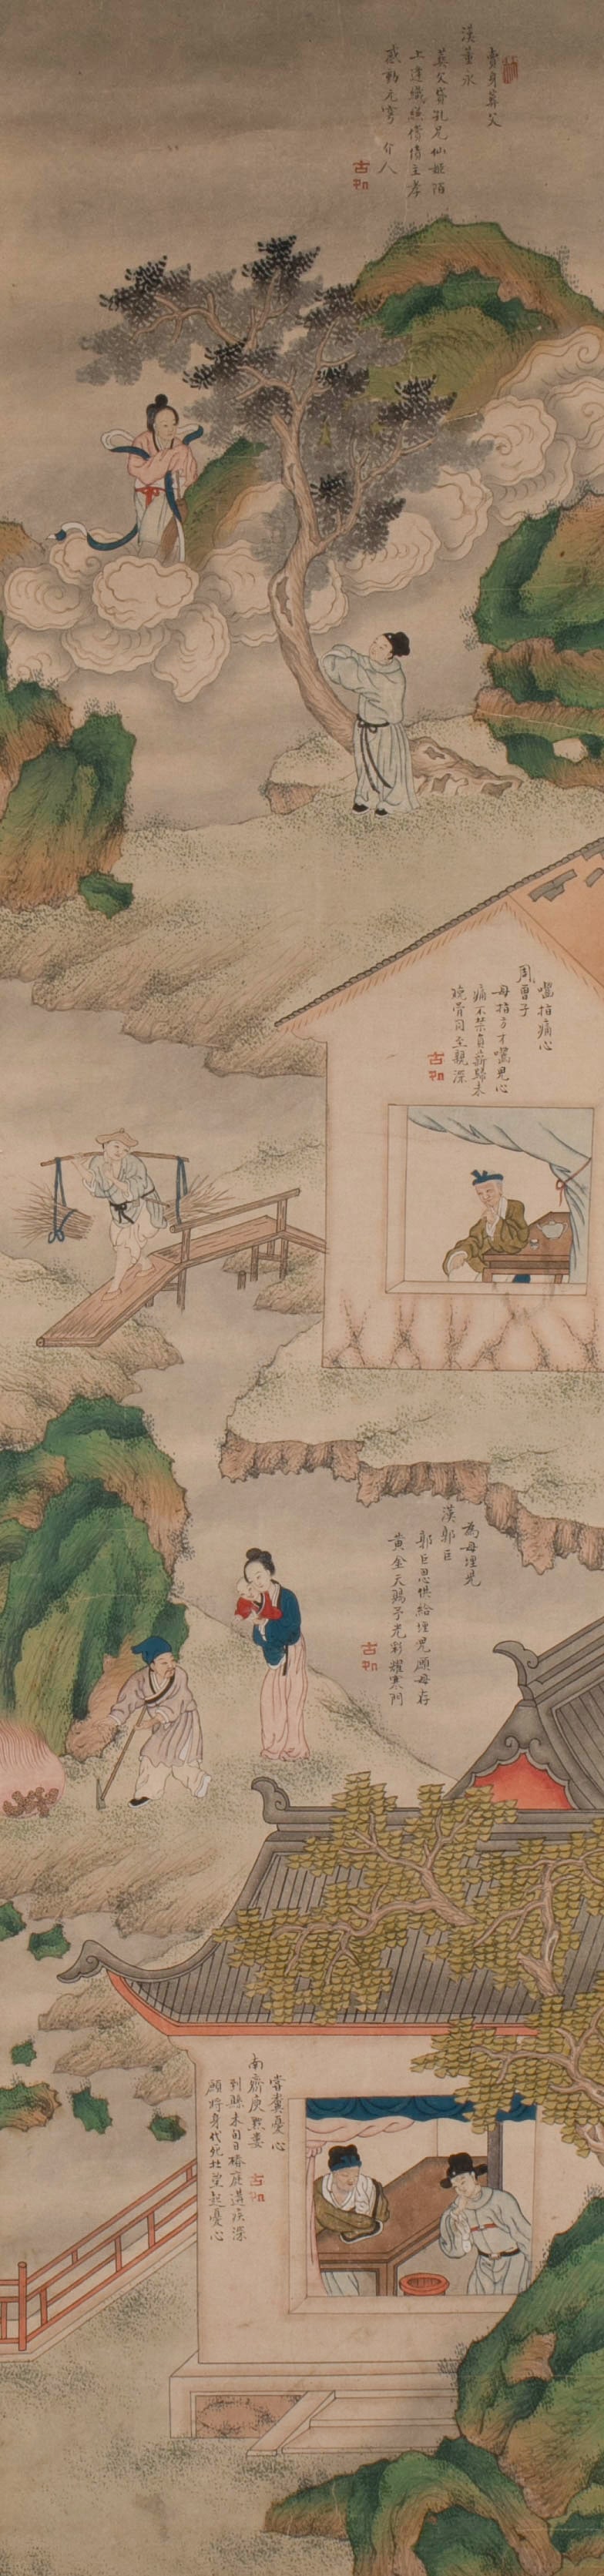 賣身葬父
漢董永
葬父貸孔兄仙姬陌
上逢織縑償債主孝
感動天穹 介人
嚙指痛心
周曾子
母指方才嚙兒心
痛不禁負薪歸未
晚骨肉至親深
為母埋兒
漢郭巨
郭巨思供給埋兒願母存
黃金天賜予光彩耀寒門
嘗糞憂心
南齊庾黔婁
到縣未旬日椿庭遘疾深
願將身代死北望起憂心